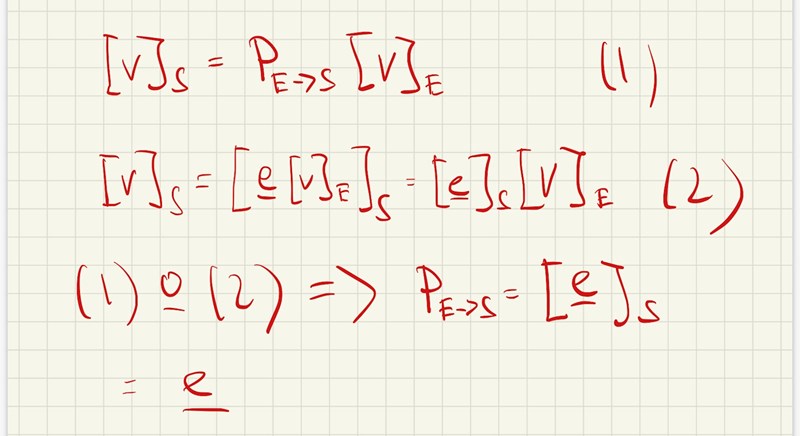 [v]_S = P_{E->S} [v]_E (1)
[v]_S = [e̲ [v]_E]_S = [e̲]_S [v]_E (2)
(1) o̲ (2) => P_{E->S} = [e̲]_S
= e̲